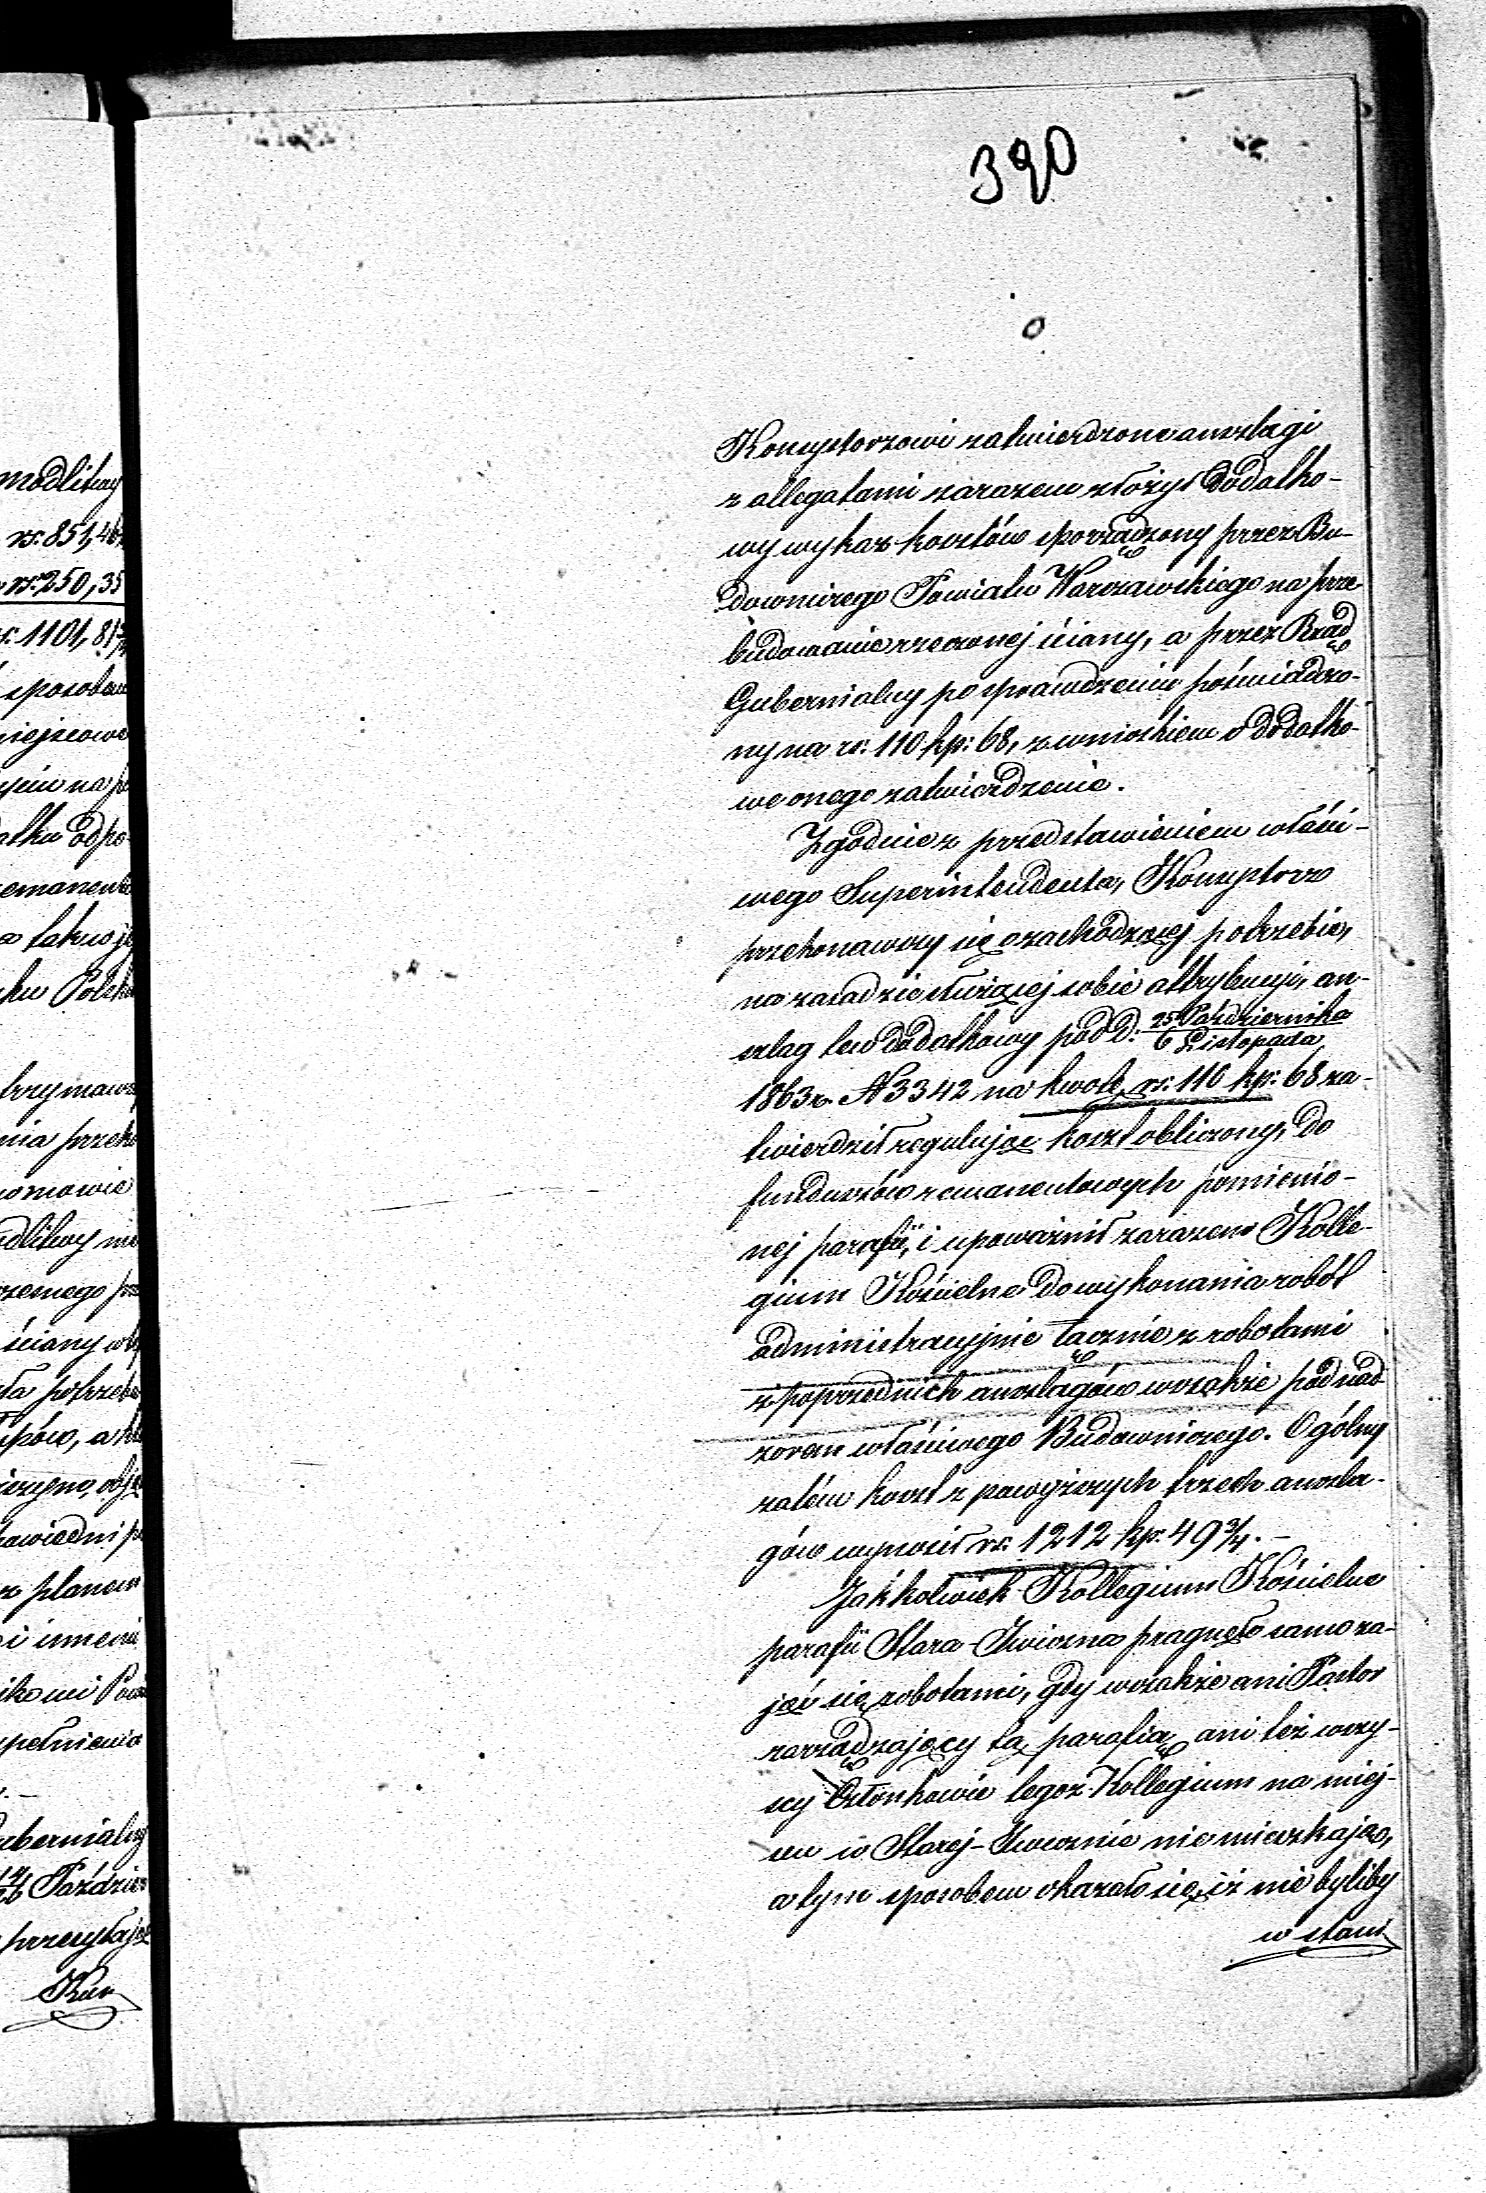 modlitwy
rs: 851,46
rs: 250,35
rs: 1101,81
sposobem
miejscowe
na
odpo-
remanen
a takw
Polsk
trzymaws
nia przek
domowie
dlitwy nie
ściany
ła potrzeb
pów, a
powiedni
z planem
i innemi
upełnienia
Gubernialny
Paździer
przesyłają
Kon
390
Konsystorzowi zatwierdzone anszlagi
z allegatami zarazem złożył dodatko-
wy wykaz kosztów sporządzony przez Bu-
downiczego Powiatu Warszawskiego na prze-
budowanie rzeczonej ściany, a przez Rząd
Gubernialny po sprawdzeniu poświadczo-
ny na rs: 110 kp: 68, z wnioskiem o dodatko-
we onego zatwierdzenie.
Zgodnie z przedstawieniem właści-
wego Superintendenta, Konsystorz
przekonawszy się o zachodzącej potrzebie,
na zasadzie służącej sobie attrybucyi, an-
szlag ten dodatkowy pod d: 25 Października / 6 Listopada
1863 r. N 3342 na kwotę rs: 110 kp: 68 za-
twierdził regulując koszt obliczony, do
funduszów remanentowych pomienio-
nej parafii, i upoważnił zarazem Kolle-
gium Kościelne do wykonania robót
administracyjnie łącznie z robotami
z poprzednich anszlagów wszakże pod nad-
zorem właściwego Budowniczego. Ogólny
zatém koszt z powyższych trzech anszla-
gów wynosił rs: 1212 kp: 49 3/4. –
Jakkolwiek Kollegium Kościelne
parafii Stara-Iwiczna pragnęło samo za-
jąć się robotami, gdy wszakże ani Pastor
zarządzający tą parafią ani też wszy-
scy Członkowie tegoż Kollegium na miej-
scu w Starej-Iwicznie nie mieszkają,
a tym sposobem okazało się, iż nie byliby
w stani